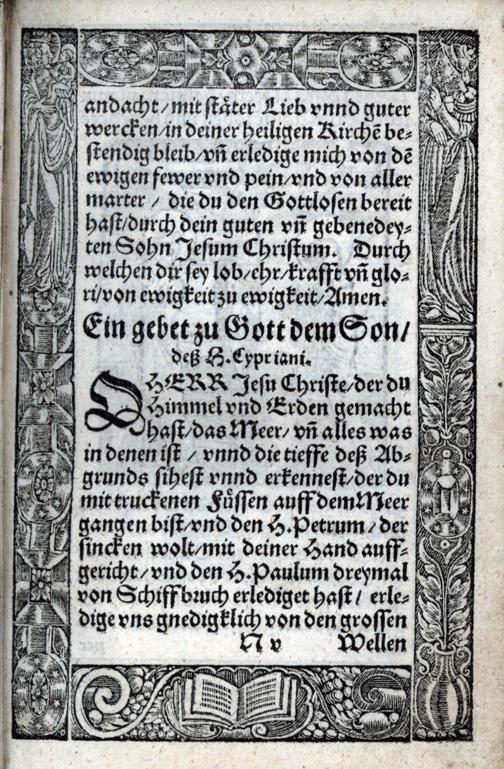 andacht/mit stäter Lieb vnnd guter
wercken/in deiner heiligen Kirchē be⸗
stendig bleib/vn̄ erledige mich von dē
ewigen fewer vnd pein/vnd von aller
marter / die du den Gottlosen bereit
hast/durch dein guten vn̄ gebenedey⸗
ten Sohn Jesum Christum. Durch
welchen dir sey lob/ehr/krafft vn̄ glo⸗
ri/von ewigkeit zu ewigkeit/Amen.
Ein gebet zu Gott dem Son/
deß H. Cypriani.
O HERR Jesu Christe/der du
Himmel vnd Erden gemacht
hast/das Meer/ vn̄ alles was
in denen ist / vnnd die tieffe deß Ab⸗
grunds sihest vnnd erkennest/der du
mit truckenen Füssen auff dem Meer
gangen bist/vnd den H. Petrum / der
sincken wolt/mit deiner Hand auff⸗
gericht/vnd den H. Paulum dreymal
von Schiffbruch erlediget hast/ erle⸗
dige vns gnedigklich von den grossen
N v Wellen